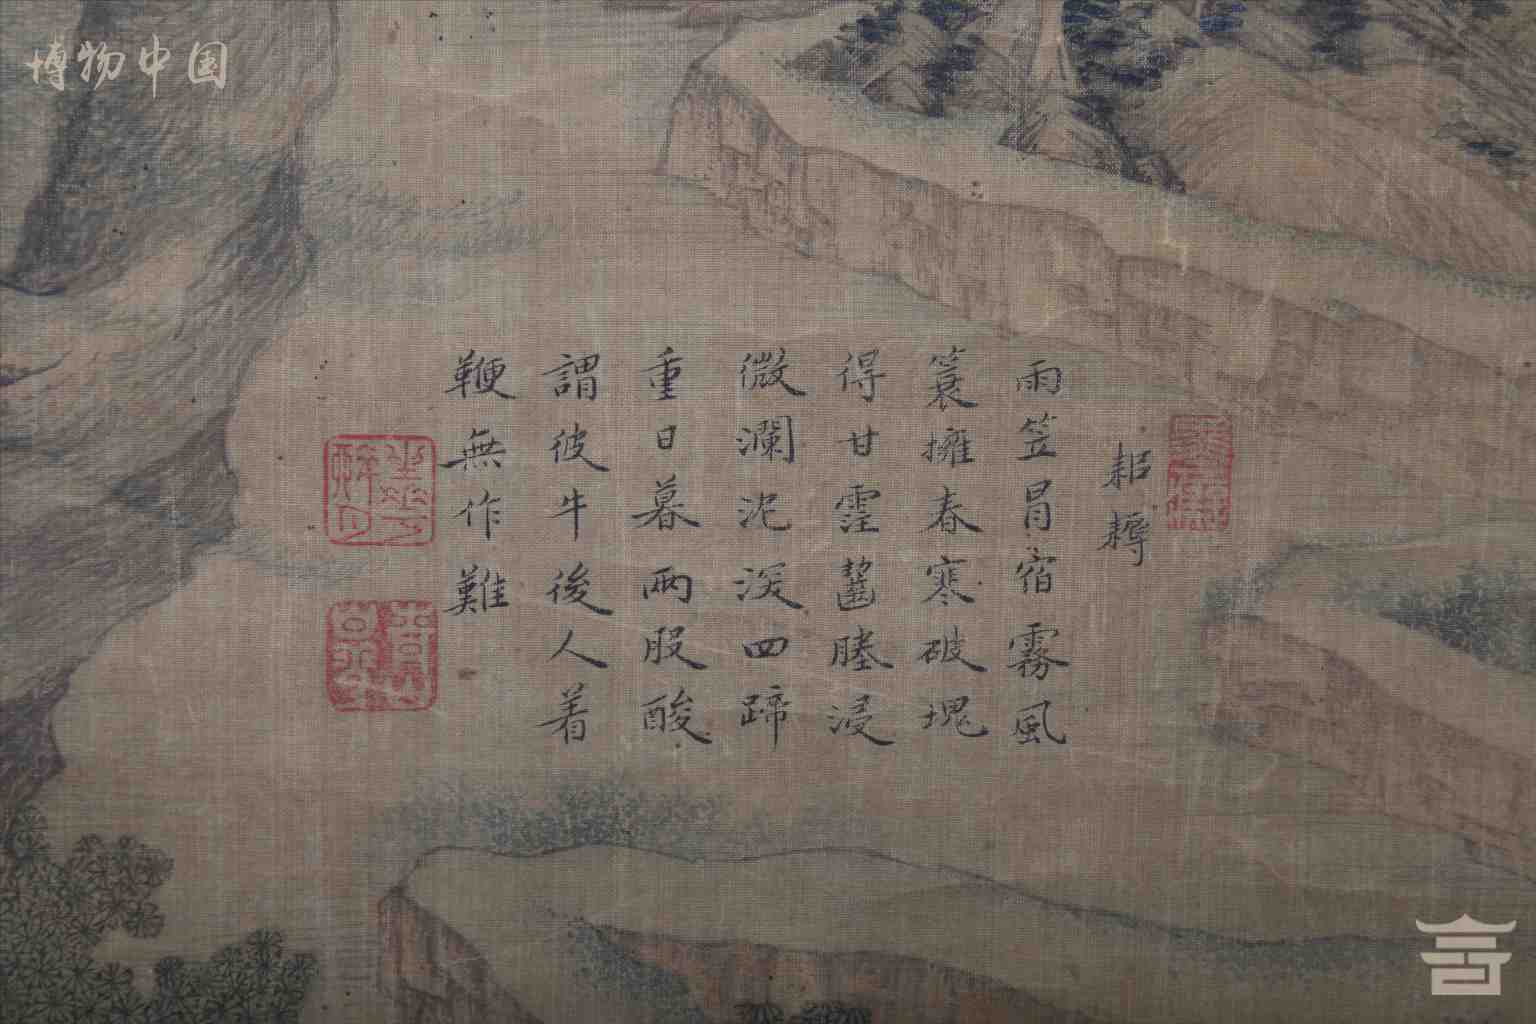 博物中国
耙耨
雨笠冒宿霧風
簑擁春寒破塊
得甘霪齧塍浸
微瀾泥深四蹄
重日暮兩股酸
謂彼牛後人着
鞭無作難